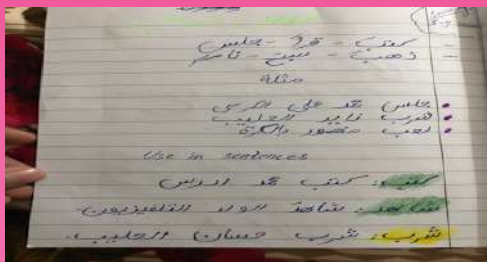 كتب - قرأ - جلس
ذهب - سبح - نام
مثلة
جلس محمد على الكرسي
شرب نايف الحليب
لعب منصور بالكرة
Use in sentences
كتب: كتب محمد الدرس
شاهد: شاهد الولد التلفزيون.
شرب: شرب حسان الحليب.